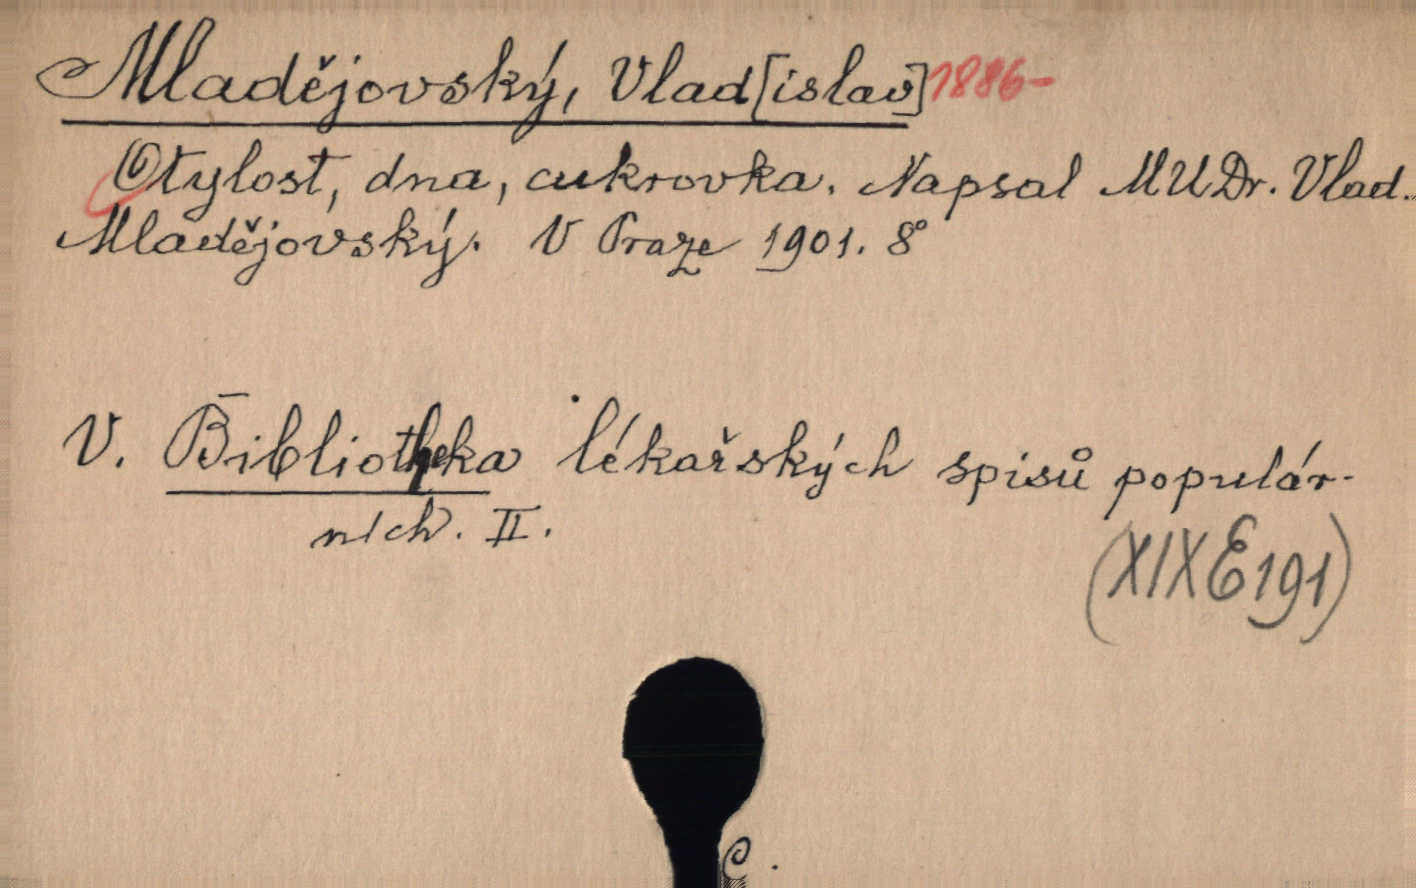 Mladějovský, Vlad[islav] 1886-
Otylost, dna, cukrovka. Napsal MUDr. Vlad.
Mladějovský. V Praze 1901. 8°
V. Bibliotheka lékařských spisů populár-
ních. II.
(XIX E 191)